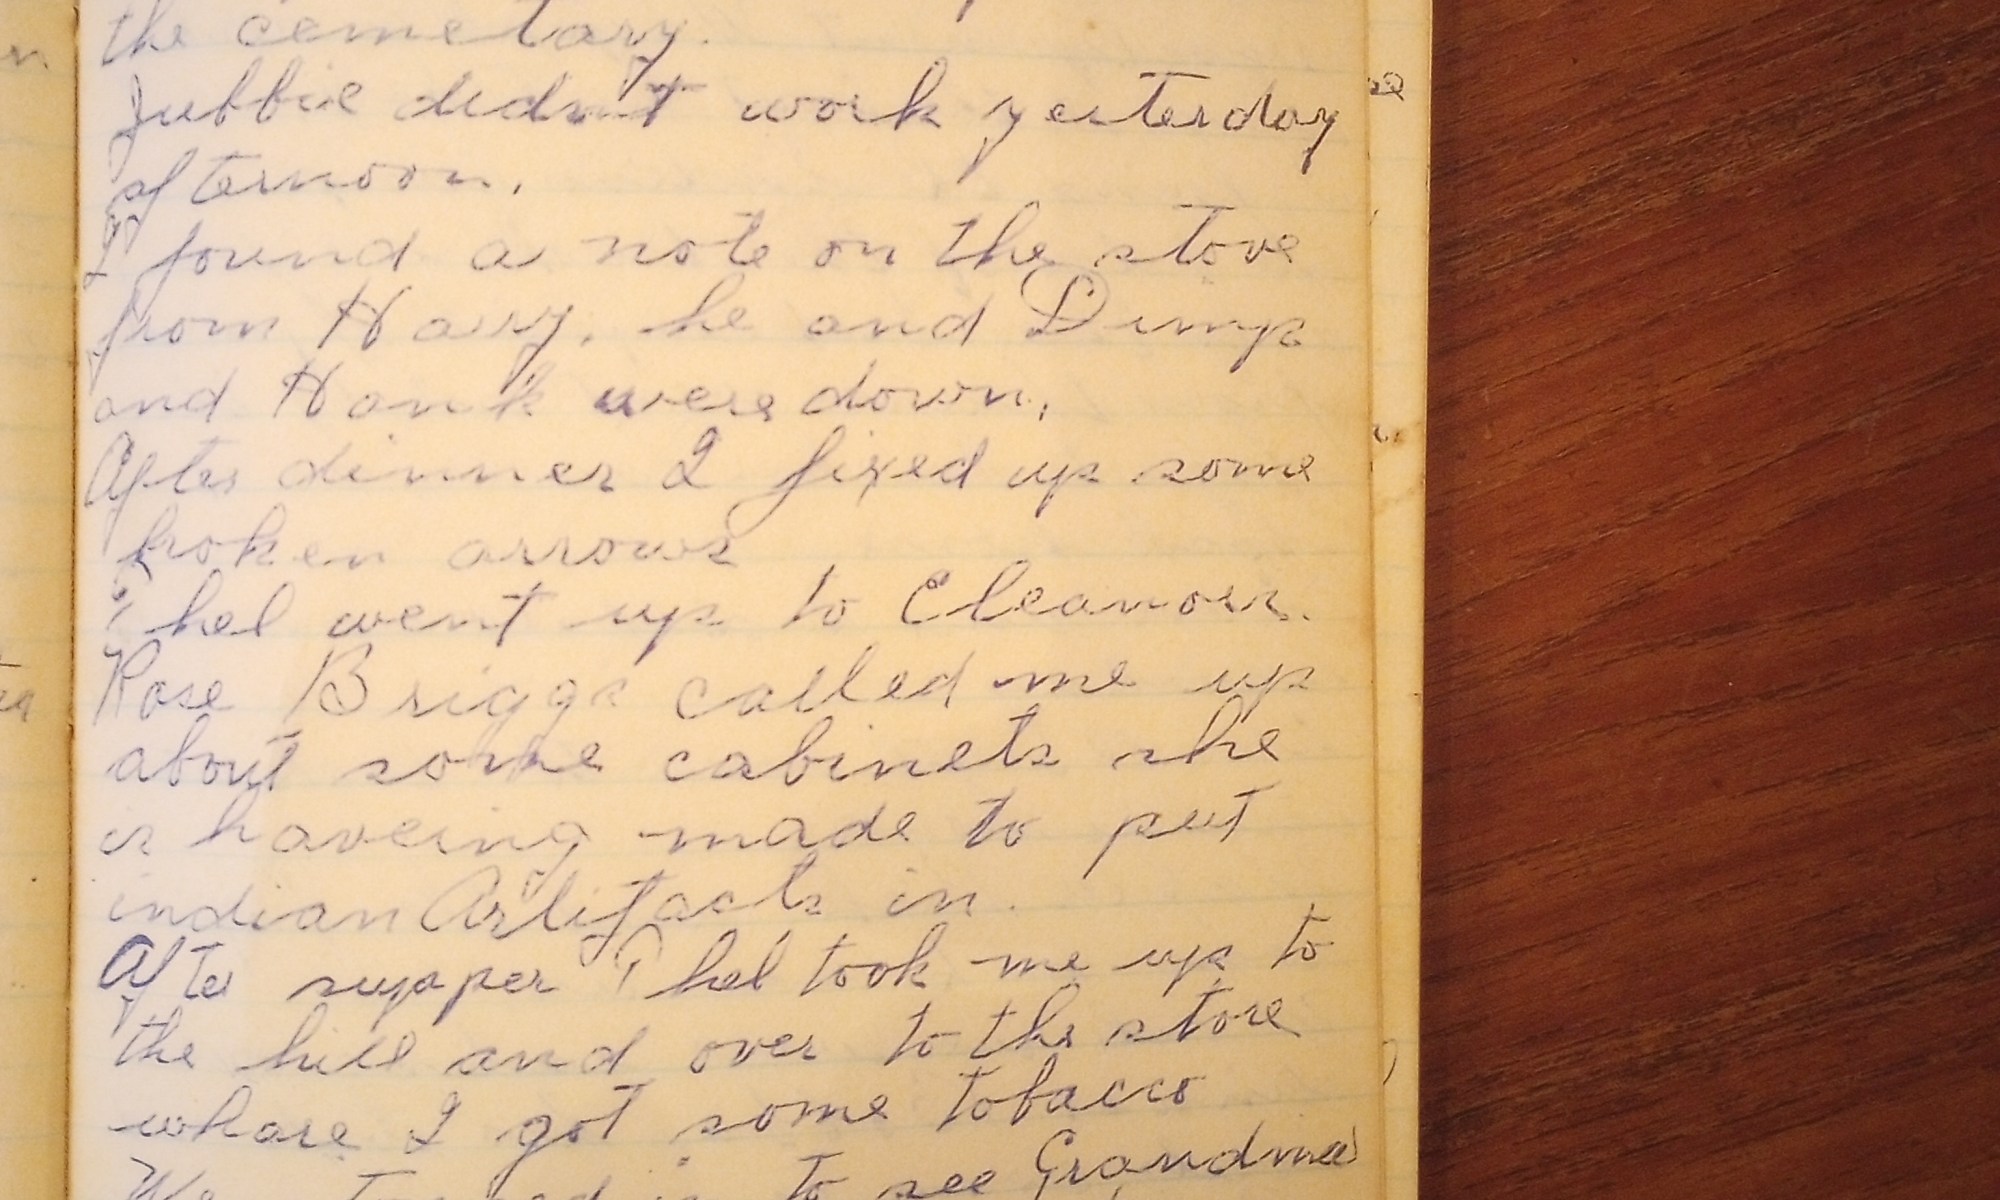 the cemetary.
Jubbie didn't work yesterday
afternoon.
I found a note on the stove
from Harry, he and Dimp
and Hank were down.
After dinner I fixed up some
broken arrows
Thel went up to Eleanors.
Rose Briggs called me up
about some cabinets she
is haveing made to put
indian Artifacts in.
After supper Thel took me up to
the hill and over to the store
whare I got some tobacco
We stopped in to see Grandma